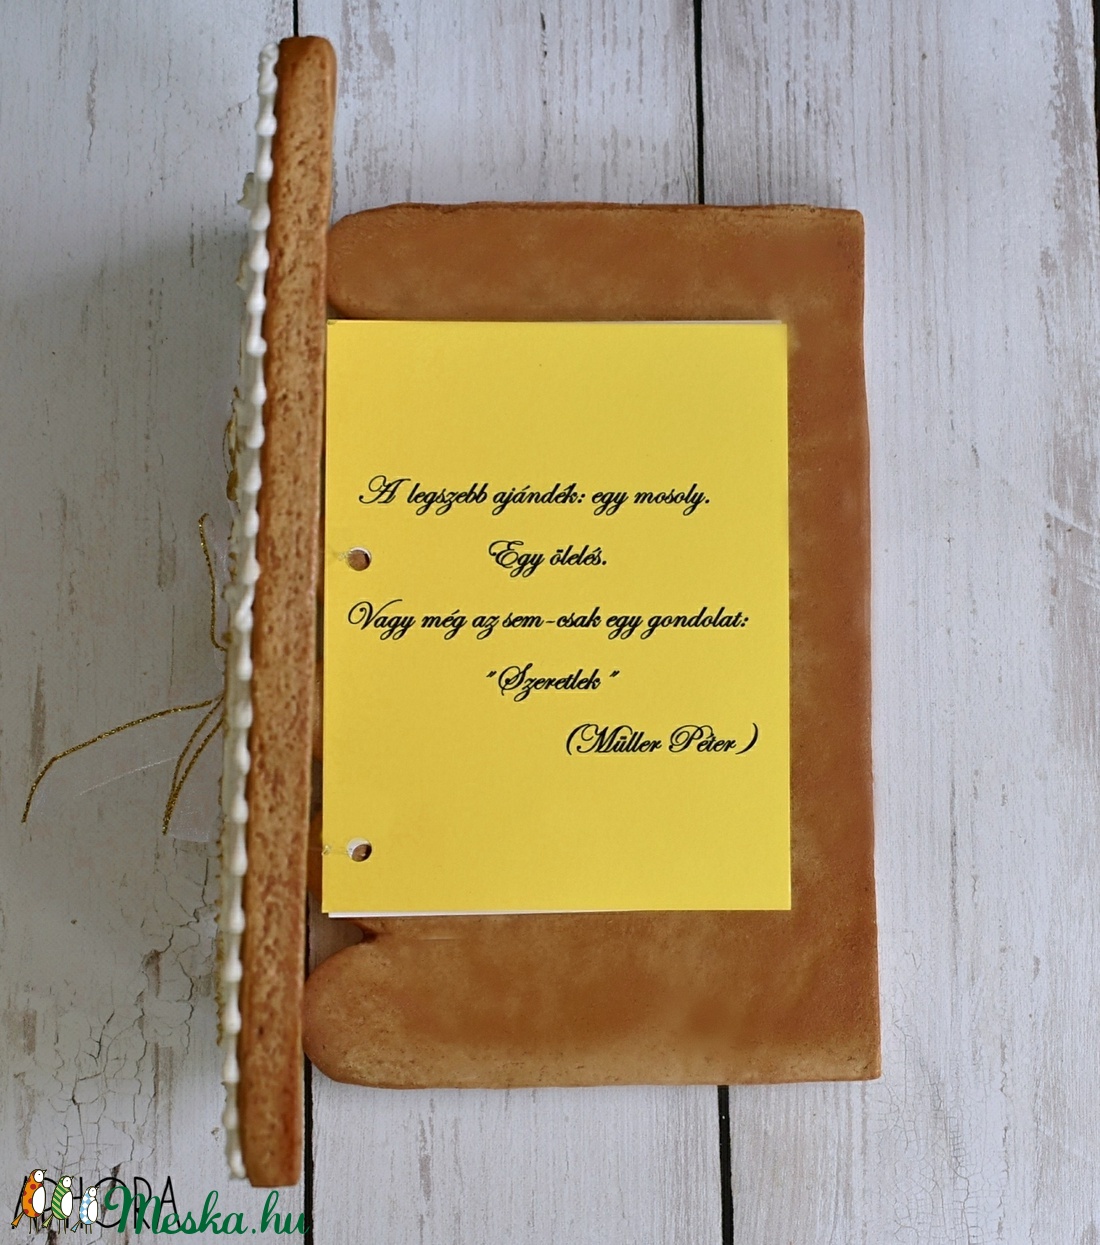 A legszebb ajándék: egy mosoly.
Egy ölelés.
Vagy még az sem-csak egy gondolat:
"Szeretlek"
(Müller Péter)
Meska.hu